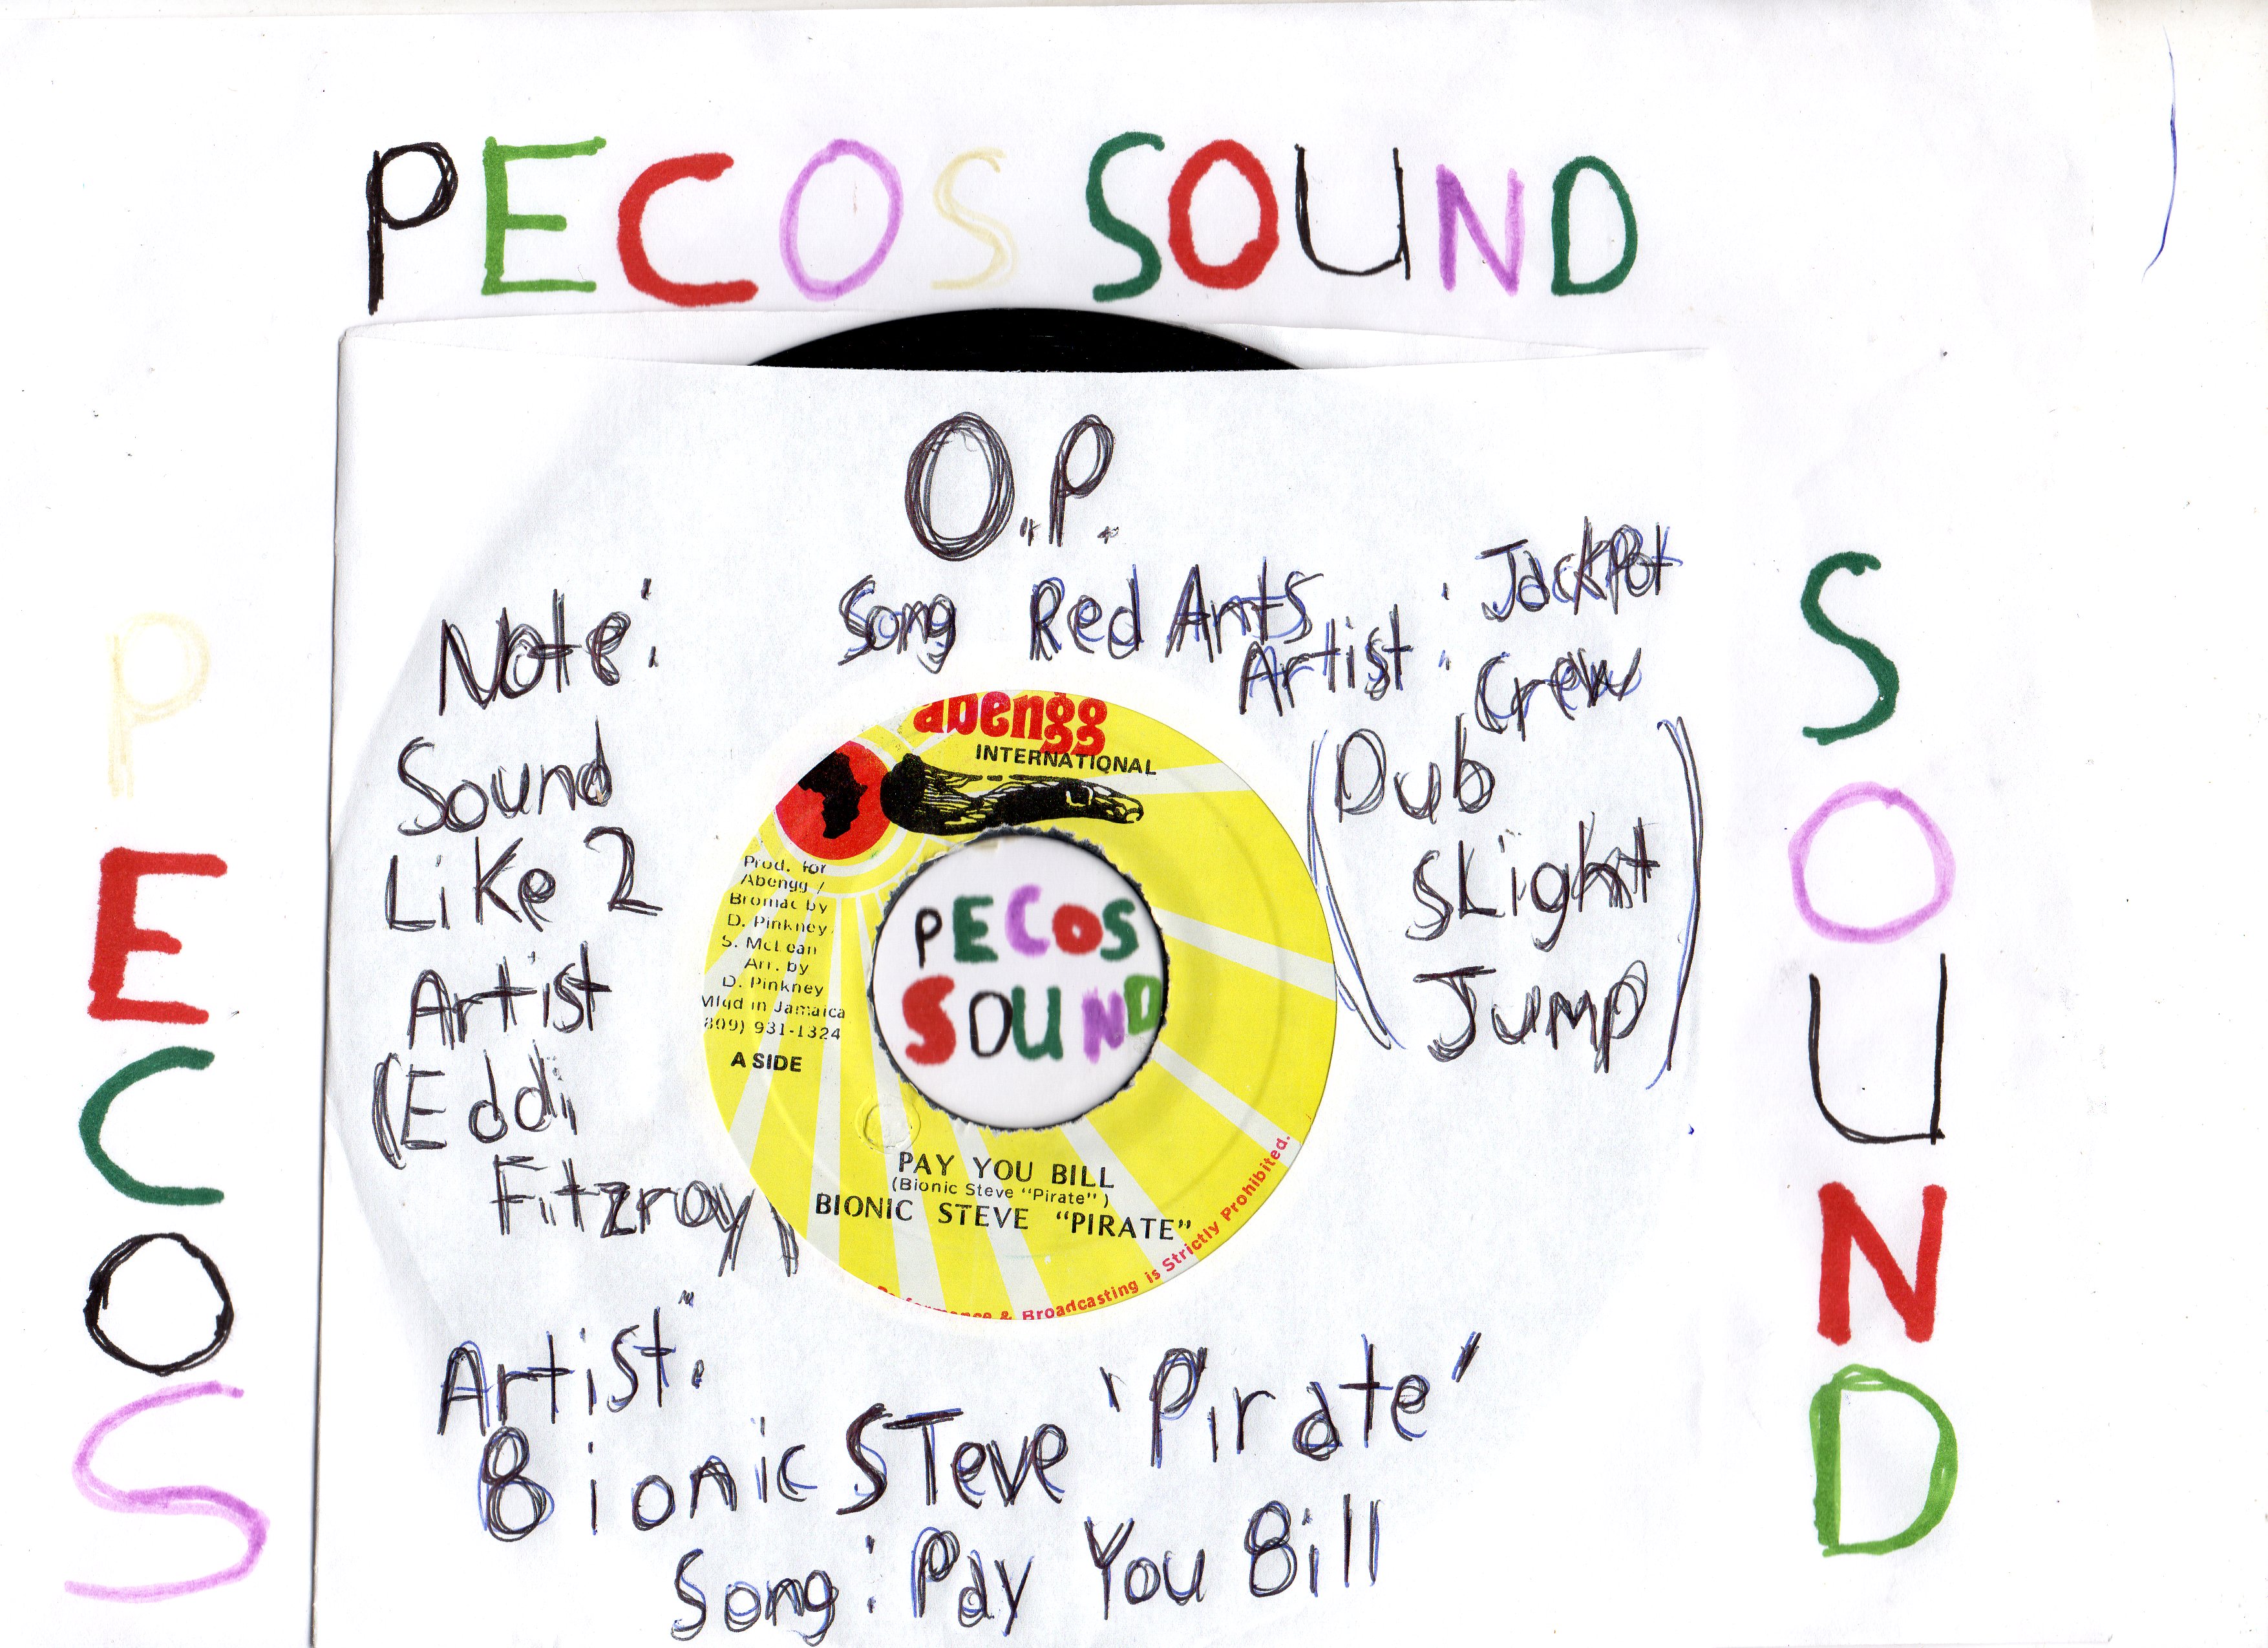 PECOS SOUND
O.P.
Song Red Ants
Artist: Jackpot
Crew
(Dub
SLight
Jump)
Note:
Sound
Like 2
Artist
(Eddi
Fitzroy)
PECOS
SOUND
abengg
INTERNATIONAL
Prod. for
Abengg /
Bromac by
D. Pinkney
S. McLean
Arr. by
D. Pinkney
Mfgd in Jamaica
809) 931-1324
A SIDE
PECOS
SOUND
PAY YOU BILL
(Bionic Steve "Pirate")
BIONIC STEVE "PIRATE"
& Broadcasting is Strictly Prohibited.
Artist:
Bionic STeve 'Pirate'
Song: Pay You Bill